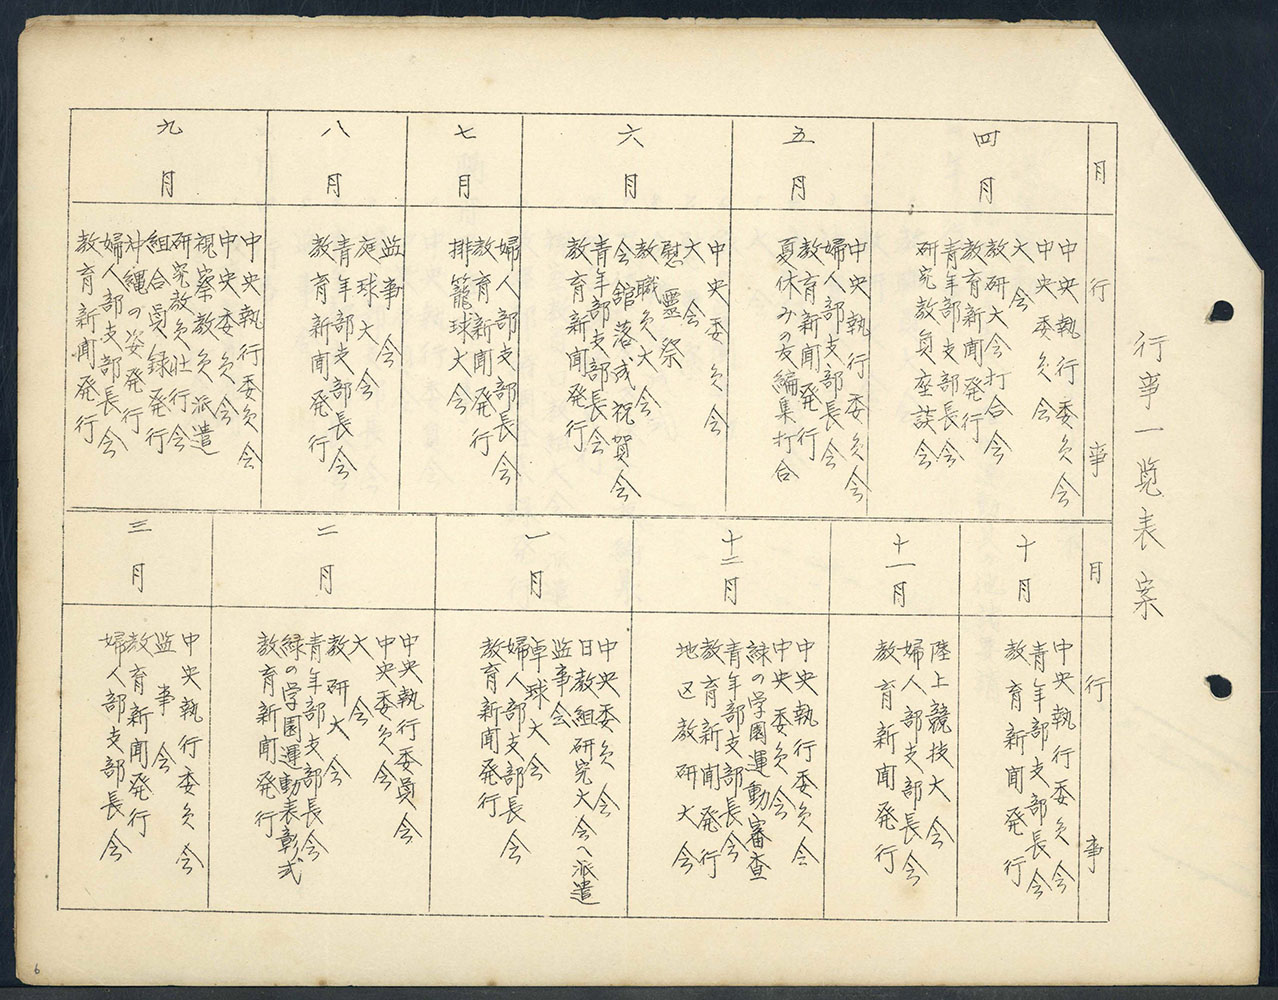 行事一覧表案
月
行事
四月
中央執行委員会
中央委員会
大会
教研大会打合会
教育新聞発行
青年部支部長会
研究教員座談会
五月
中央執行委員会
婦人部支部長会
教育新聞発行
夏休みの友編集打合
六月
中央委員会
大会
慰霊祭
教職員大会
会舘落成祝賀会
青年部支部長会
教育新聞発行
七月
婦人部支部長会
教育新聞発行
排籠球大会
八月
监事会
庭球大会
青年部支部長会
教育新聞発行
九月
中央執行委員会
中央委員会
視察教員派遣
研究教員壮行会
組合員録発行
沖縄の姿発行
婦人部支部長会
教育新聞発行
月
行事
十月
中央執行委員会
青年部支部長会
教育新聞発行
十一月
陸上競技大会
婦人部支部長会
教育新聞発行
十二月
中央執行委員会
中央委員会
緑の学園運動審査
青年部支部長会
教育新聞発行
地区教研大会
一月
中央委員会
日教組研究大会へ派遣
监事会
卓球大会
婦人部支部長会
教育新聞発行
二月
中央執行委員会
中央委員会
大会
教研大会
青年部支部長会
緑の学園運動表彰式
教育新聞発行
三月
中央執行委員会
监事会
教育新聞発行
婦人部支部長会
6